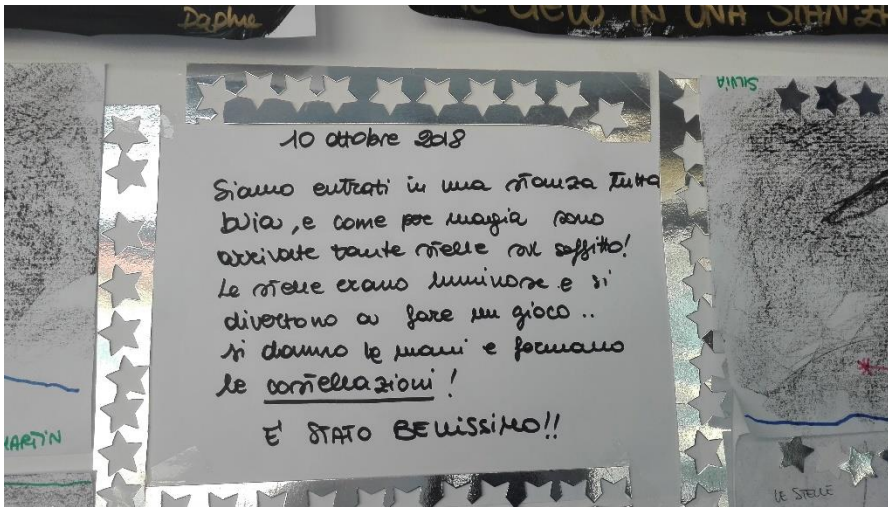 Daphne
IL CIELO IN UNA STANZA
SILVIA
10 ottobre 2018
Siamo entrati in una stanza tutta
buia, e come per magia sono
arrivate tante stelle sul soffitto!
Le stelle erano luminose e si
divertono a fare un gioco..
si danno le mani e formano
le costellazioni!
È STATO BELLISSIMO!!
MARTIN
LE STELLE